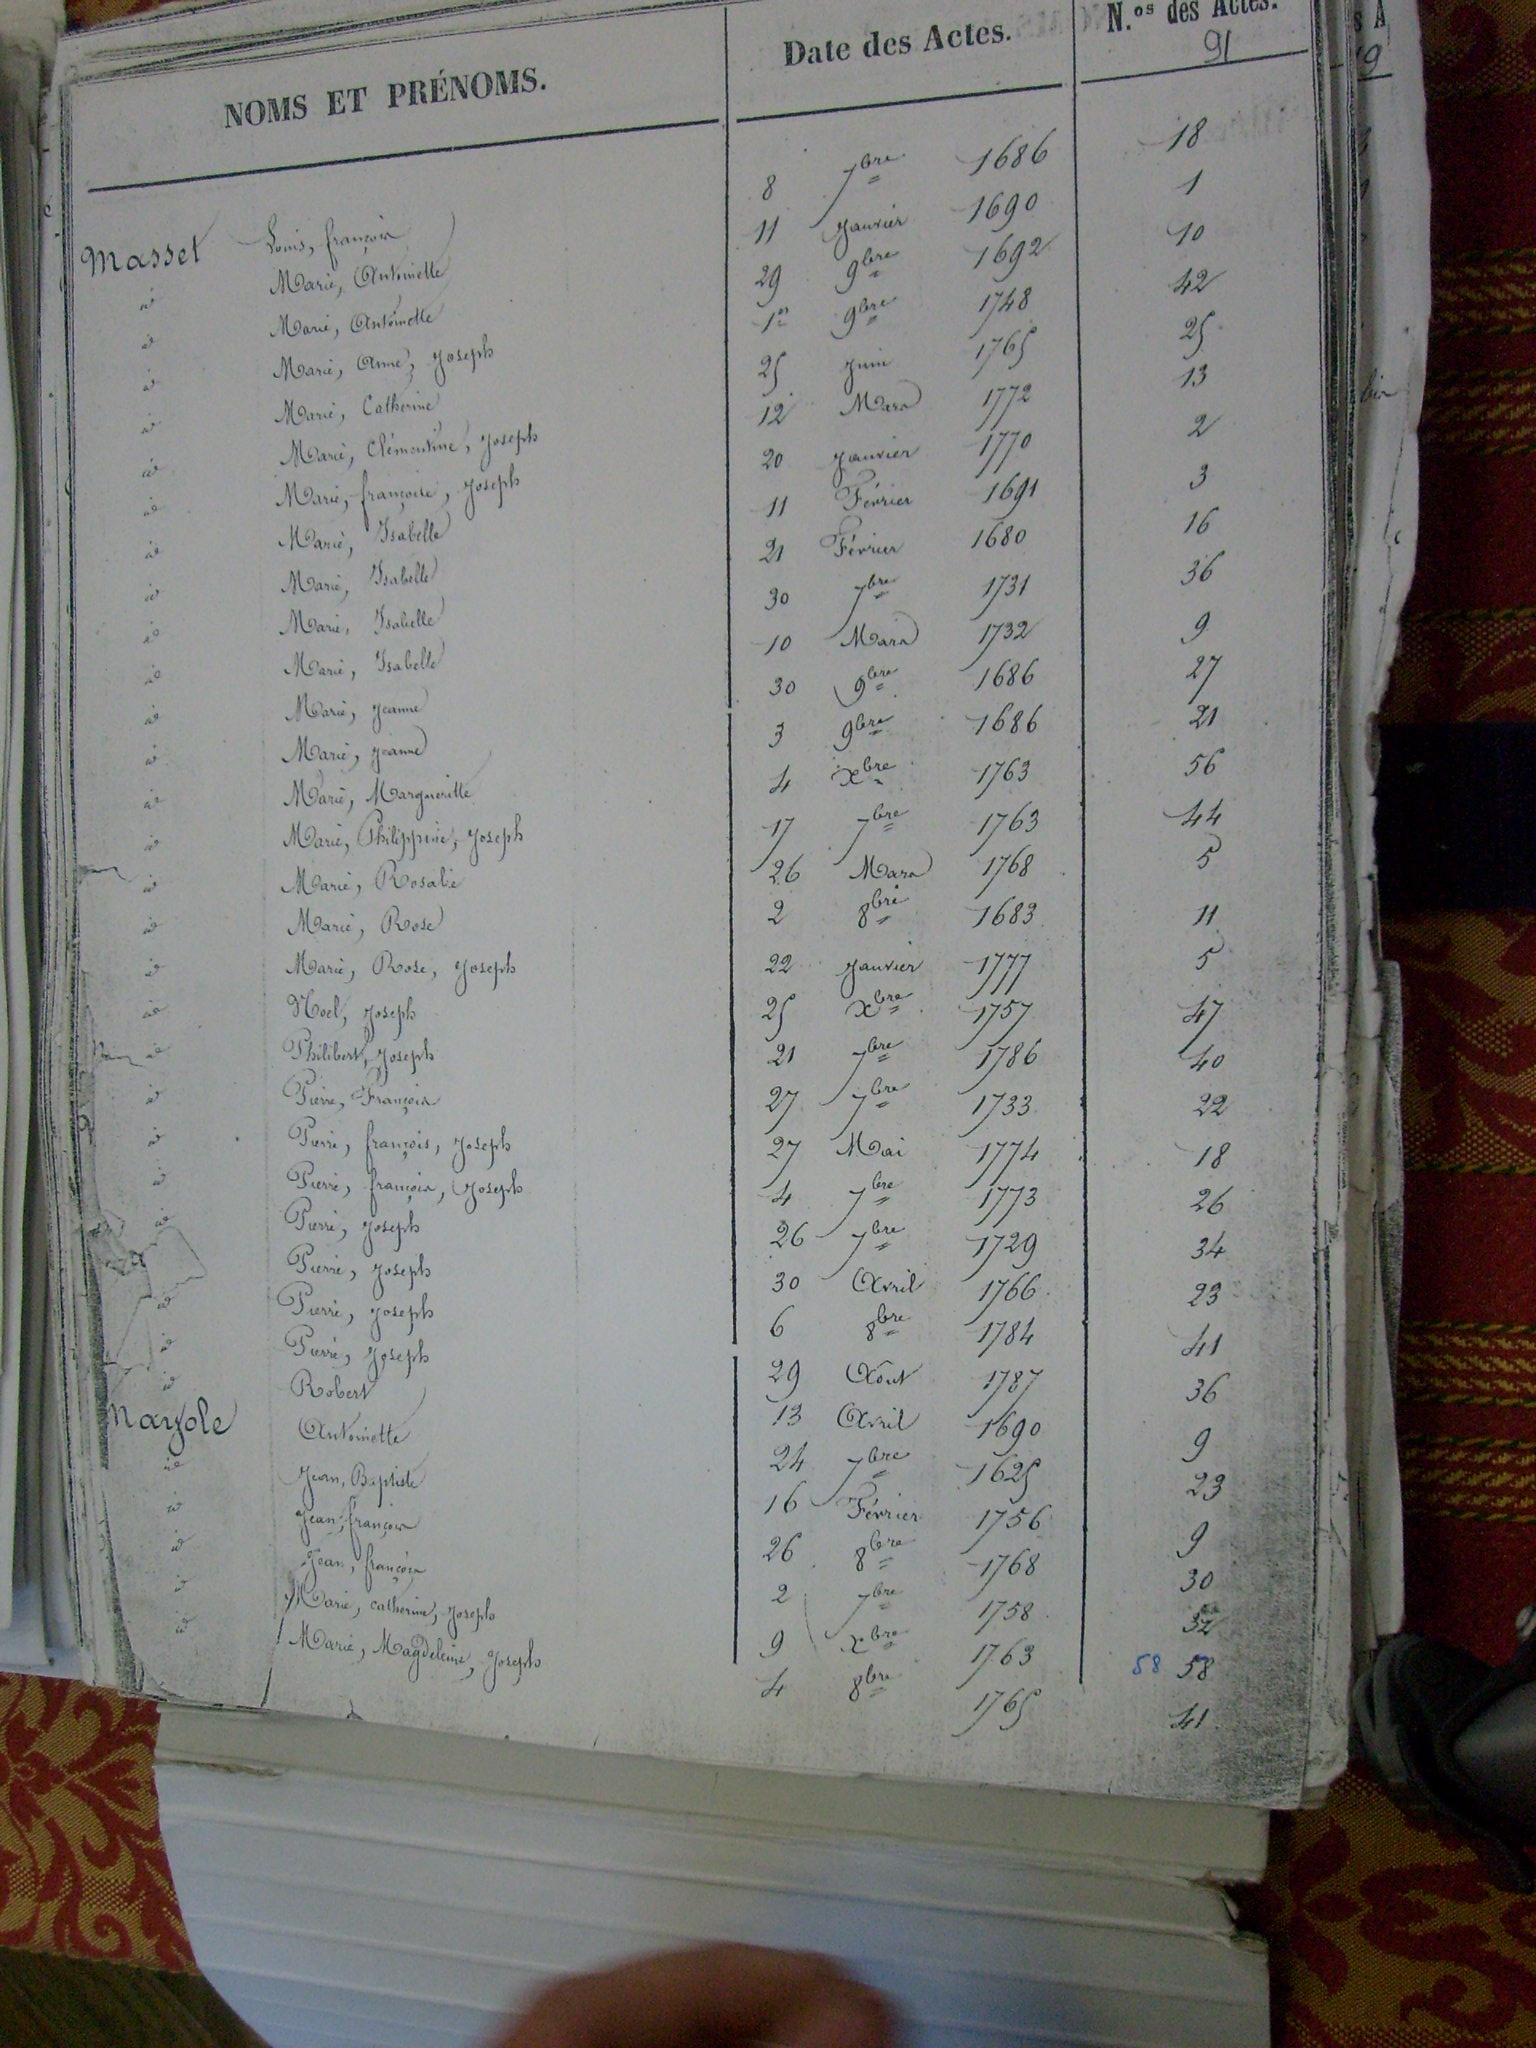 NOMS ET PRÉNOMS. Date des Actes. N.os des Actes.
91
Masset Louis, françois 8 7bre 1686 18
id Marie, Antoinette 11 Janvier 1690 1
id Marie, Antoinette 29 9bre 1692 10
id Marie, Anne, Joseph 1er 9bre 1748 42
id Marie, Catherine 25 Juin 1765 25
id Marie, Clémentine, Joseph 12 Mars 1772 13
id Marie, françoise, Joseph 20 Janvier 1770 2
id Marie, Isabelle 11 Février 1691 3
id Marie, Isabelle 21 Février 1680 16
id Marie, Isabelle 30 7bre 1731 36
id Marie, Isabelle 10 Mars 1732 9
id Marie, Jeanne 30 9bre 1686 27
id Marie, Jeanne 3 9bre 1686 21
id Marie, Margueritte 4 Xbre 1763 56
id Marie, Philippine, Joseph 17 7bre 1763 44
id Marie, Rosalie 26 Mars 1768 5
id Marie, Rose 2 8bre 1683 11
id Marie, Rose, Joseph 22 Janvier 1777 5
id Noel, Joseph 25 Xbre 1757 47
id Philibert, Joseph 21 7bre 1786 40
id Pierre, François 27 7bre 1733 22
id Pierre, françois, Joseph 27 Mai 1774 18
id Pierre, françois, Joseph 4 7bre 1773 26
id Pierre, Joseph 26 7bre 1729 34
id Pierre, Joseph 30 Avril 1766 23
id Pierre, Joseph 6 8bre 1784 41
id Pierre, Joseph 29 Août 1787 36
id Robert 13 Avril 1690 9
Mayole Antoinette 24 7bre 1625 23
id Jean, Baptiste 16 Février 1756 9
id Jean, françois 26 8bre 1768 30
id Jean, françois 2 7bre 1758 32
id Marie, catherine, Joseph 9 xbre 1763 58 58
id Marie, Magdeleine, Joseph 4 8bre 1765 41